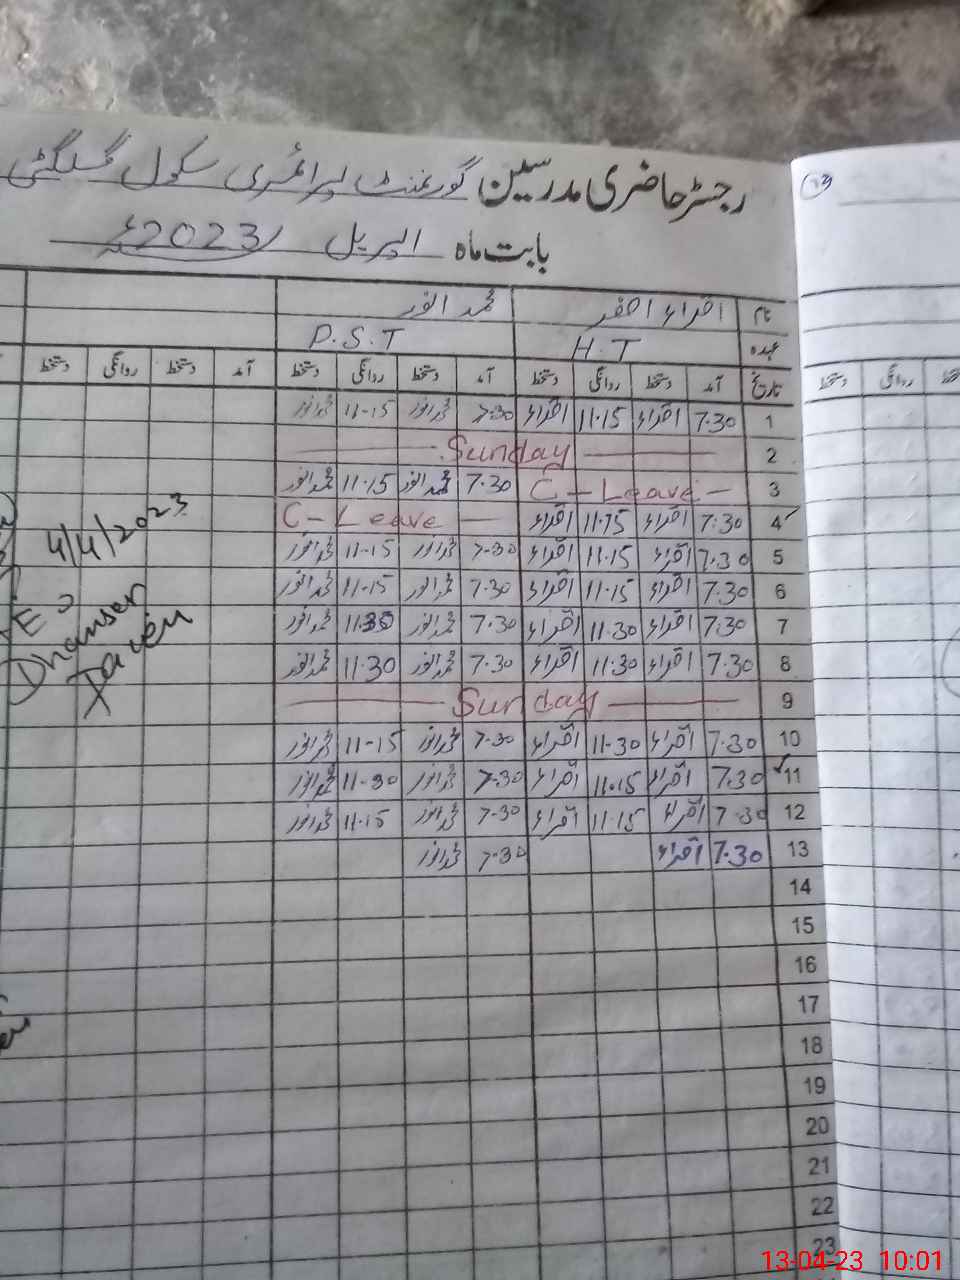 رجسٹر حاضری مدرسین گورنمنٹ پرائمری سکول
بابت ماہ اپریل 2023ء
نام اقراء اصغر محمد انور
عہدہ H.T P.S.T
تاریخ آمد دستخط روانگی دستخط آمد دستخط روانگی دستخط آمد دستخط روانگی دستخط
1 7.30 اقراء 11.15 اقراء 7.30 محمد انور 11-15 محمد انور
2 Sunday
3 C-Leave 7.30 محمد انور 11.15 محمد انور
4 7:30 اقراء 11.15 اقراء C-Leave
5 7.30 اقراء 11.15 اقراء 7.30 محمد انور 11-15 محمد انور
6 7.30 اقراء 11.15 اقراء 7.30 محمد انور 11-15 محمد انور
7 7.30 اقراء 11.30 اقراء 7.30 محمد انور محمد انور
8 7.30 اقراء 11.30 اقراء 7.30 محمد انور 11.30 محمد انور
9 Sunday
10 7.30 اقراء 11.30 اقراء 7.30 محمد انور 11-15 محمد انور
11 7.30 اقراء 11.15 اقراء 7.30 محمد انور 11-30 محمد انور
12 7.30 اقراء 11.15 اقراء 7.30 محمد انور 11.15 محمد انور
13 7.30 اقراء 7.30 محمد انور
14
15
16
17
18
19
20
21
22
23
4/4/2023
دستخط روانگی
13-04-23 10:01